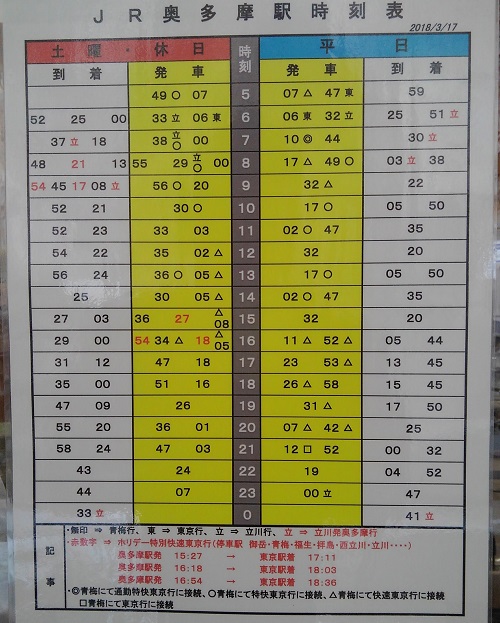 JR奥多摩駅時刻表
2018/3/17
土曜・休日 時刻 平日
到着 発車 発車 到着
49○ 07 5 07△ 47東 59
52 25 00 33立 06東 6 06東 32立 25 51立
37立 18 38立○ 7 10◎ 44 30立
48 21 13 55 29立○ 00 8 17△ 49○ 03立 38
54 45 17 08立 56○ 20 9 32△ 22
52 21 30○ 10 17○ 05 50
52 23 33 03 11 02○ 47 35
54 22 35 02△ 12 32 20
56 24 36○ 05△ 13 17○ 05 50
25 30 05△ 14 02○ 47 35
27 03 36 27 △08 15 32 20
29 00 54 34△ 18 △05 16 11△ 52△ 05 44
31 12 47 18 17 23 53△ 13 45
35 00 51 16 18 26△ 58 15 45
47 09 26 19 31△ 17 50
55 20 36 01 20 07△ 42△ 25
58 24 47 03 21 12□ 52 00 32
43 24 22 19 04 52
44 07 23 00立 47
33立 0 41立
記事
・無印 ⇒ 青梅行、東 ⇒ 東京行、立 ⇒ 立川行、立 ⇒ 立川発奥多摩行
・赤数字 ⇒ ホリデー特別快速東京行(停車駅 御岳・青梅・福生・拝島・西立川・立川・・・・)
奥多摩駅発 15:27 → 東京駅着 17:11
奥多摩駅発 16:18 → 東京駅着 18:03
奥多摩駅発 16:54 → 東京駅着 18:36
・◎青梅にて通勤特快東京行に接続、○青梅にて特快東京行に接続、△青梅にて快速東京行に接続
□青梅にて東京行に接続